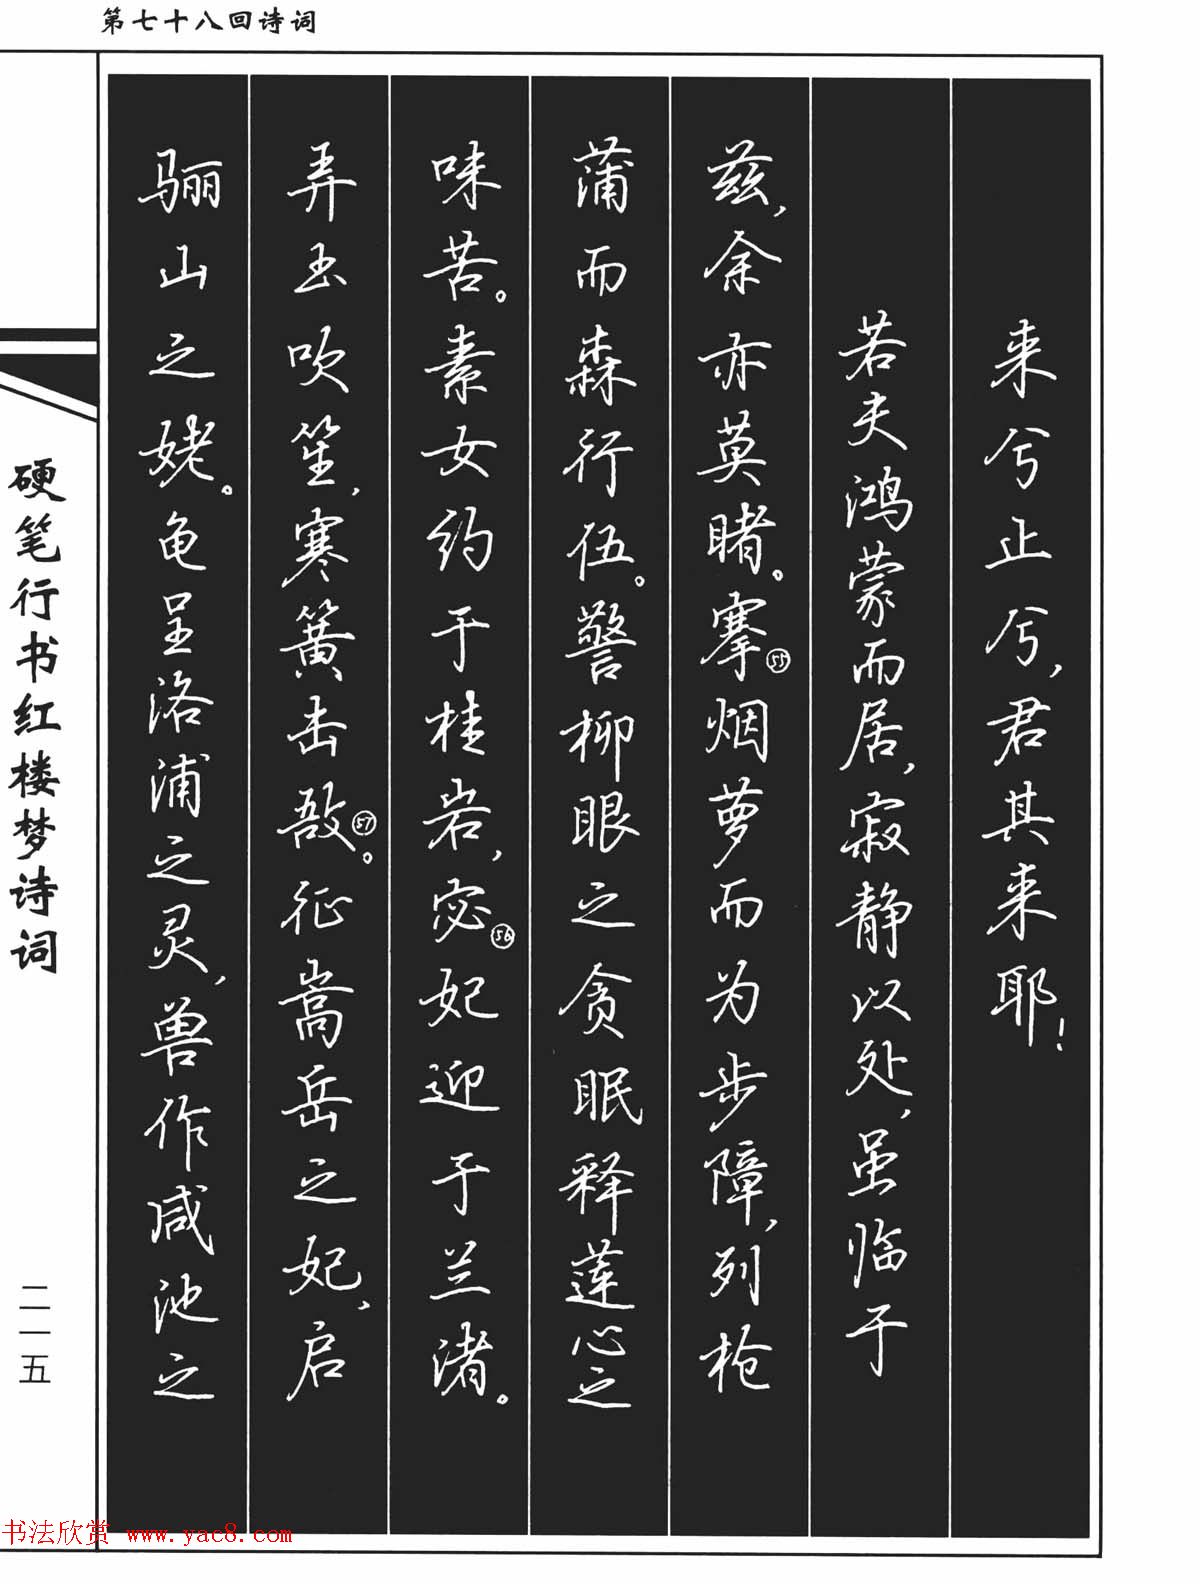 第七十八回诗词
来兮止兮，君其来耶！
若夫鸿蒙而居，寂静以处，虽临于
兹，余亦莫睹。搴㊺烟萝而为步障，列枪
蒲而森行伍。警柳眼之贪眠释莲心之
味苦。素女约于桂岩，宓㊻妃迎于兰渚。
弄玉吹笙，寒簧击敔㊼。征嵩岳之妃，启
骊山之姥。龟呈洛浦之灵，兽作咸池之
硬笔行书红楼梦诗词
二一五
书法欣赏 www.yac8.com